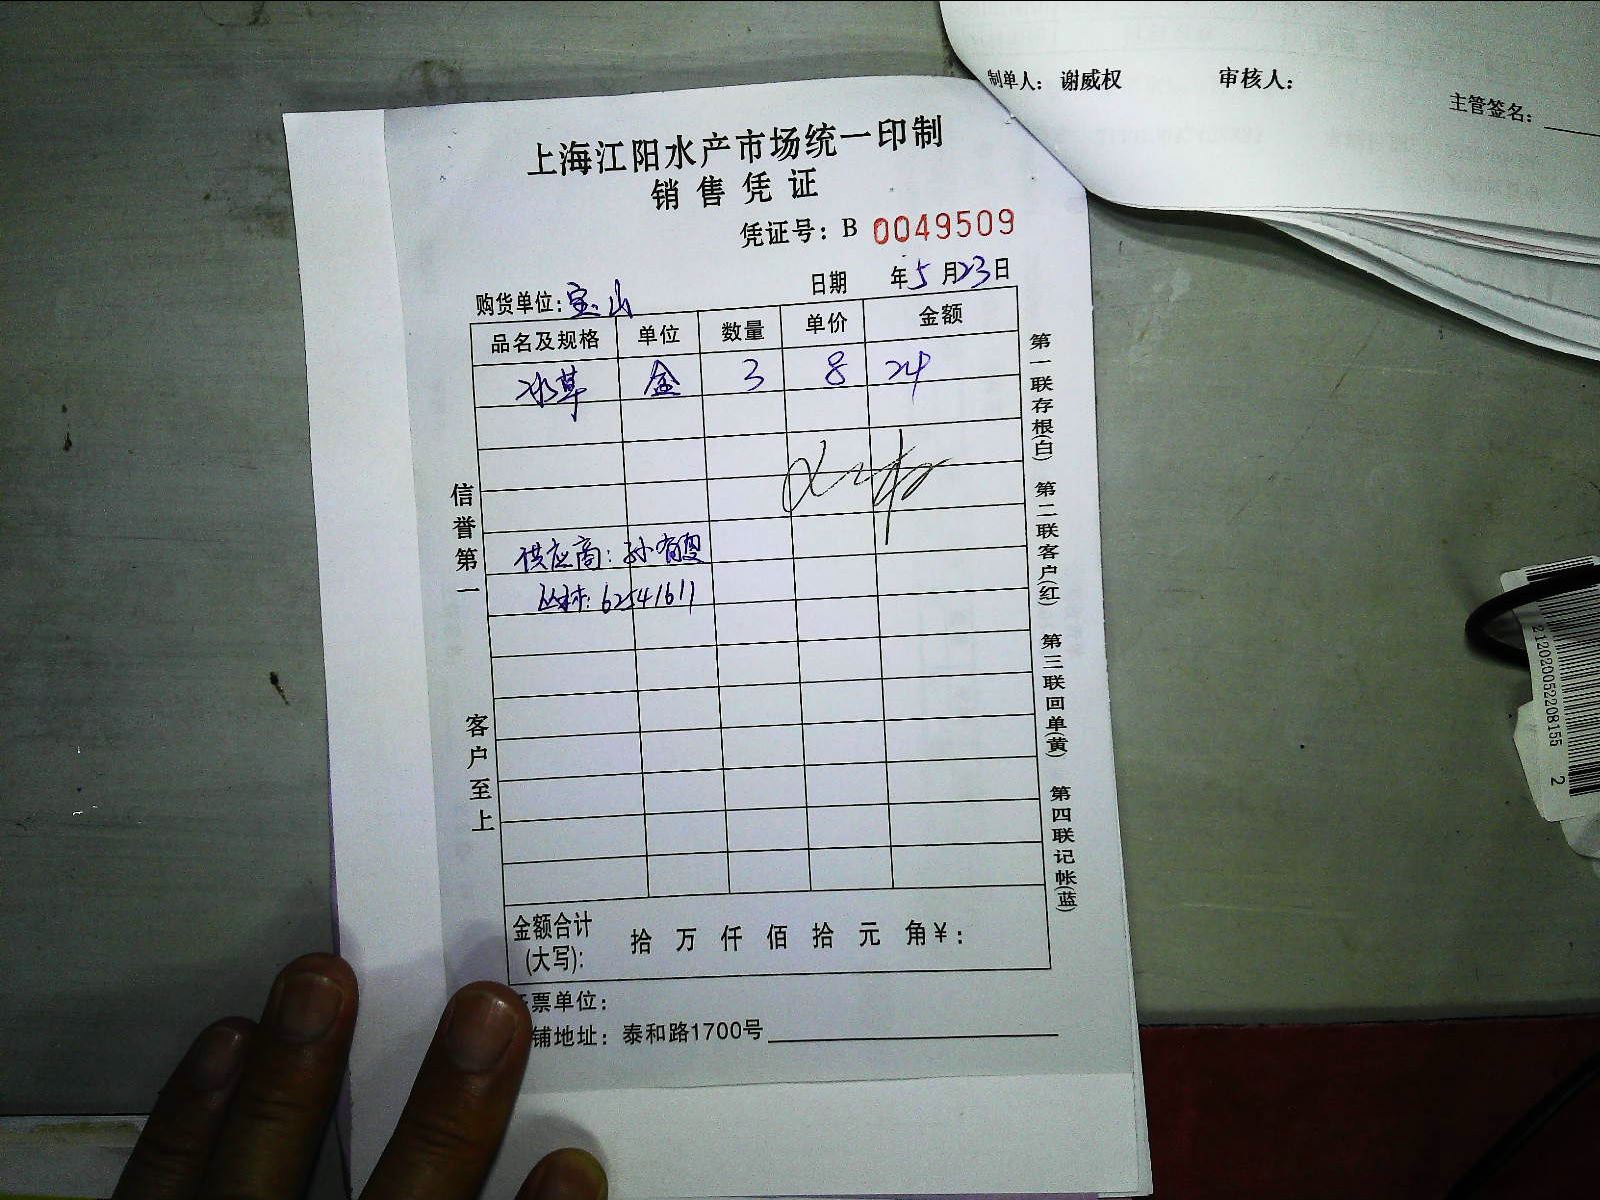 制单人： 谢威权 审核人：
主管签名：
上海江阳水产市场统一印制
销售凭证
凭证号：B 0049509
日期 年5月23日
购货单位：宝山
品名及规格 单位 数量 单价 金额
水草 盒 3 8 24
供应商：孙有
丛林：62541611
信誉第一
客户至上
第一联存根(白) 第二联客户(红) 第三联回单(黄) 第四联记帐(蓝)
金额合计
(大写)： 拾 万 仟 佰 拾 元 角￥：
票单位：
铺地址：泰和路1700号
212020052208155 2